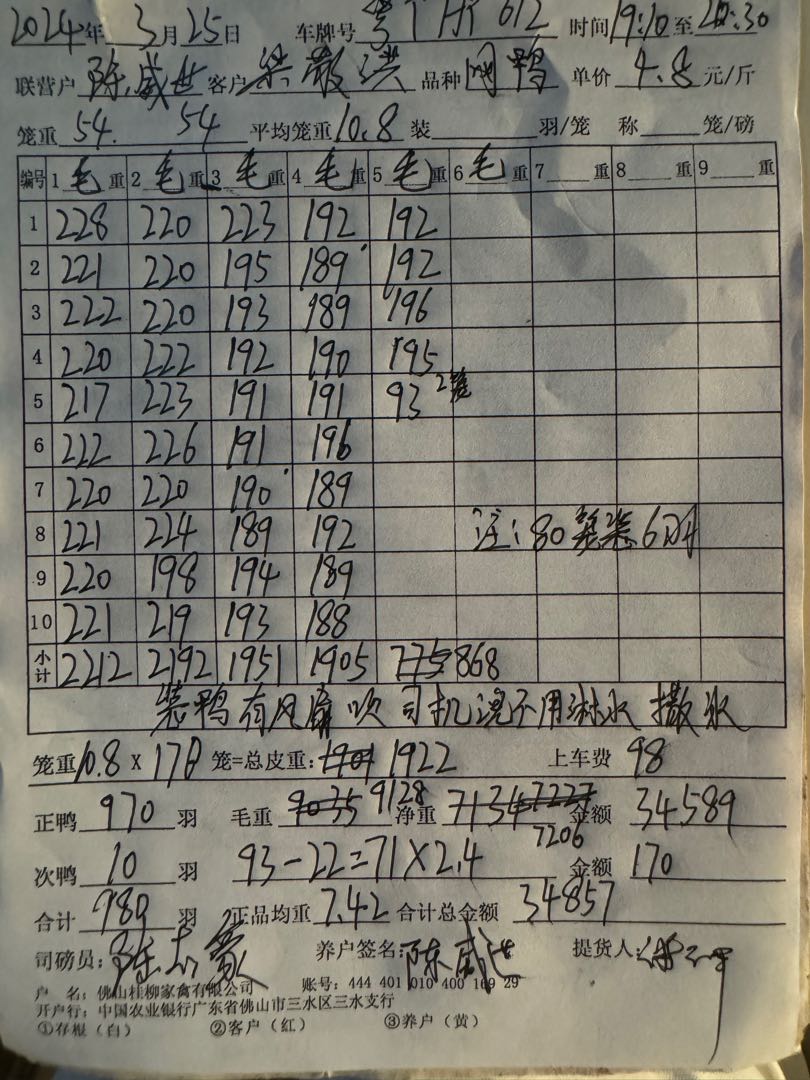 2024年 3月25日 车牌号 HT 612 时间19:10至20:30
联营户 陈威世 客户 梁敬洪 品种 网鸭 单价 4.8 元/斤
笼重 54. 54 平均笼重 10.8 装 羽/笼 称 笼/磅
编号 1 毛 重 2 毛 重 3 毛 重 4 毛 重 5 毛 重 6 毛 重 7 重 8 重 9 重
1 228 220 223 192 192
2 221 220 195 189 192
3 222 220 193 189 196
4 220 222 192 190 195
5 217 223 191 191 93 2笼
6 222 226 191 196
7 220 220 190 189
8 221 224 189 192 注:80笼装6
9 220 198 194 189
10 221 219 193 188
小计 2212 2192 1951 1905 775 868
装鸭有风 吹 司机说不用淋水 撒水
笼重10.8 X 178 笼=总皮重: 1901 1922 上车费 98
正鸭 970 羽 毛重 9035 9128 净重 7134 7227 7206 金额 34589
次鸭 10 羽 93-22=71×2.4 金额 170
合计 980 羽 正品均重 7.42 合计总金额 34857
司磅员: 养户签名: 陈威世 提货人:
户 名:佛山桂柳家禽有限公司 账号:444 401 010 400 169 29
开户行:中国农业银行广东省佛山市三水区三水支行
①存根(白) ②客户(红) ③养户(黄)